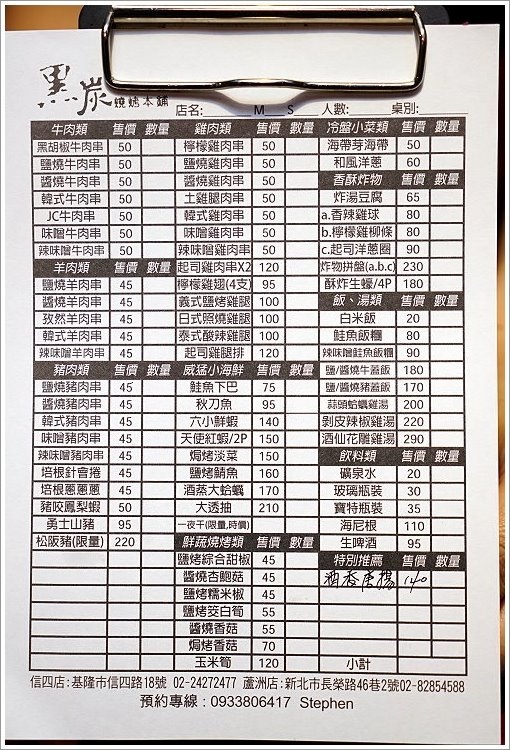 黑炭燒烤本鋪
店名: M S 人數: 桌別:
牛肉類 售價 數量
黑胡椒牛肉串 50
鹽燒牛肉串 50
醬燒牛肉串 50
韓式牛肉串 50
JC牛肉串 50
味噌牛肉串 50
辣味噌牛肉串 50
羊肉類 售價 數量
鹽燒羊肉串 45
醬燒羊肉串 45
孜然羊肉串 45
韓式羊肉串 45
辣味噌羊肉串 45
豬肉類 售價 數量
鹽燒豬肉串 45
醬燒豬肉串 45
韓式豬肉串 45
味噌豬肉串 45
辣味噌豬肉串 45
培根針會捲 45
培根蔥蔥蔥 45
豬咬鳳梨蝦 50
勇士山豬 95
松阪豬(限量) 220
雞肉類 售價 數量
檸檬雞肉串 50
鹽燒雞肉串 50
醬燒雞肉串 50
土雞腿肉串 50
韓式雞肉串 50
味噌雞肉串 50
辣味噌雞肉串 50
起司雞肉串X2 120
檸檬雞翅(4支) 95
義式鹽烤雞腿 100
日式照燒雞腿 100
泰式酸辣雞腿 100
起司雞腿排 120
威猛小海鮮 售價 數量
鮭魚下巴 75
秋刀魚 95
六小鮮蝦 140
天使紅蝦/2P 150
焗烤淡菜 150
鹽烤鯖魚 160
酒蒸大蛤蠣 170
大透抽 210
一夜干(限量,時價)
鮮蔬燒烤類 售價 數量
鹽烤綜合甜椒 45
醬燒杏鮑菇 45
鹽烤糯米椒 45
鹽烤筊白筍 55
醬燒香菇 55
焗烤香菇 70
玉米筍 120
冷盤小菜類 售價 數量
海帶芽海帶 50
和風洋蔥 60
香酥炸物 售價 數量
炸湯豆腐 65
a.香辣雞球 80
b.檸檬雞柳條 80
c.起司洋蔥圈 90
炸物拼盤(a.b.c) 230
酥炸生蠔/4P 180
飯、湯類 售價 數量
白米飯 20
鮭魚飯糰 80
辣味噌鮭魚飯糰 90
鹽/醬燒牛蓋飯 180
鹽/醬燒豬蓋飯 170
蒜頭蛤蠣雞湯 200
剝皮辣椒雞湯 220
酒仙花雕雞湯 290
飲料類 售價 數量
礦泉水 20
玻璃瓶裝 30
寶特瓶裝 35
海尼根 110
生啤酒 95
特別推薦 售價 數量
酒香唐揚 140
小計
信四店:基隆市信四路18號 02-24272477 蘆洲店:新北市長榮路46巷2號02-82854588
預約專線:0933806417 Stephen